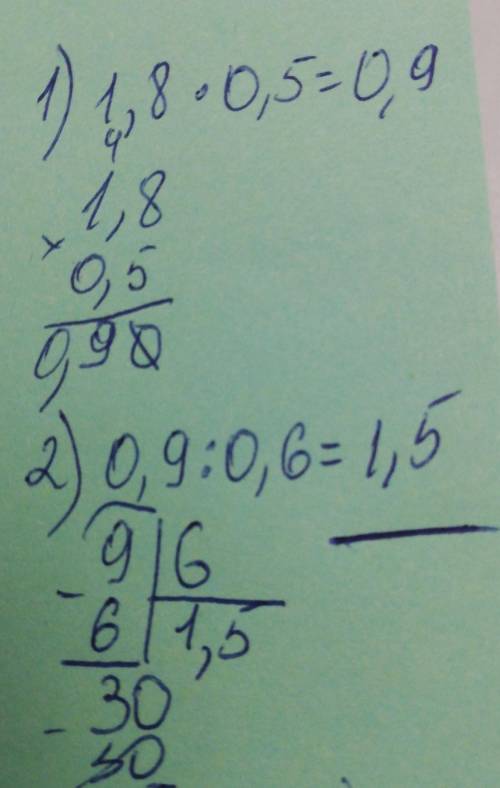 1) 1,8 · 0,5 = 0,9
4
1,8
× 0,5
0,90
2) 0,9 : 0,6 = 1,5
- 9 | 6
6 | 1,5
- 30
30